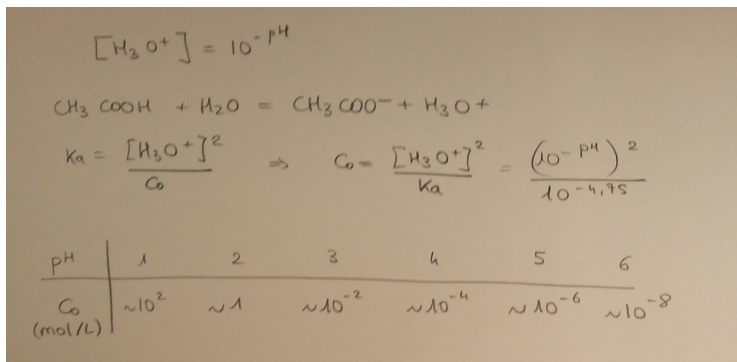 [H₃O⁺] = 10⁻ᵖᴴ
CH₃COOH + H₂O = CH₃COO⁻ + H₃O⁺
Ka = [H₃O⁺]² / C₀ ⇒ C₀ = [H₃O⁺]² / Ka = (10⁻ᵖᴴ)² / 10⁻⁴,⁷⁵
pH 1 2 3 4 5 6
C₀ (mol/L) ~10² ~1 ~10⁻² ~10⁻⁴ ~10⁻⁶ ~10⁻⁸